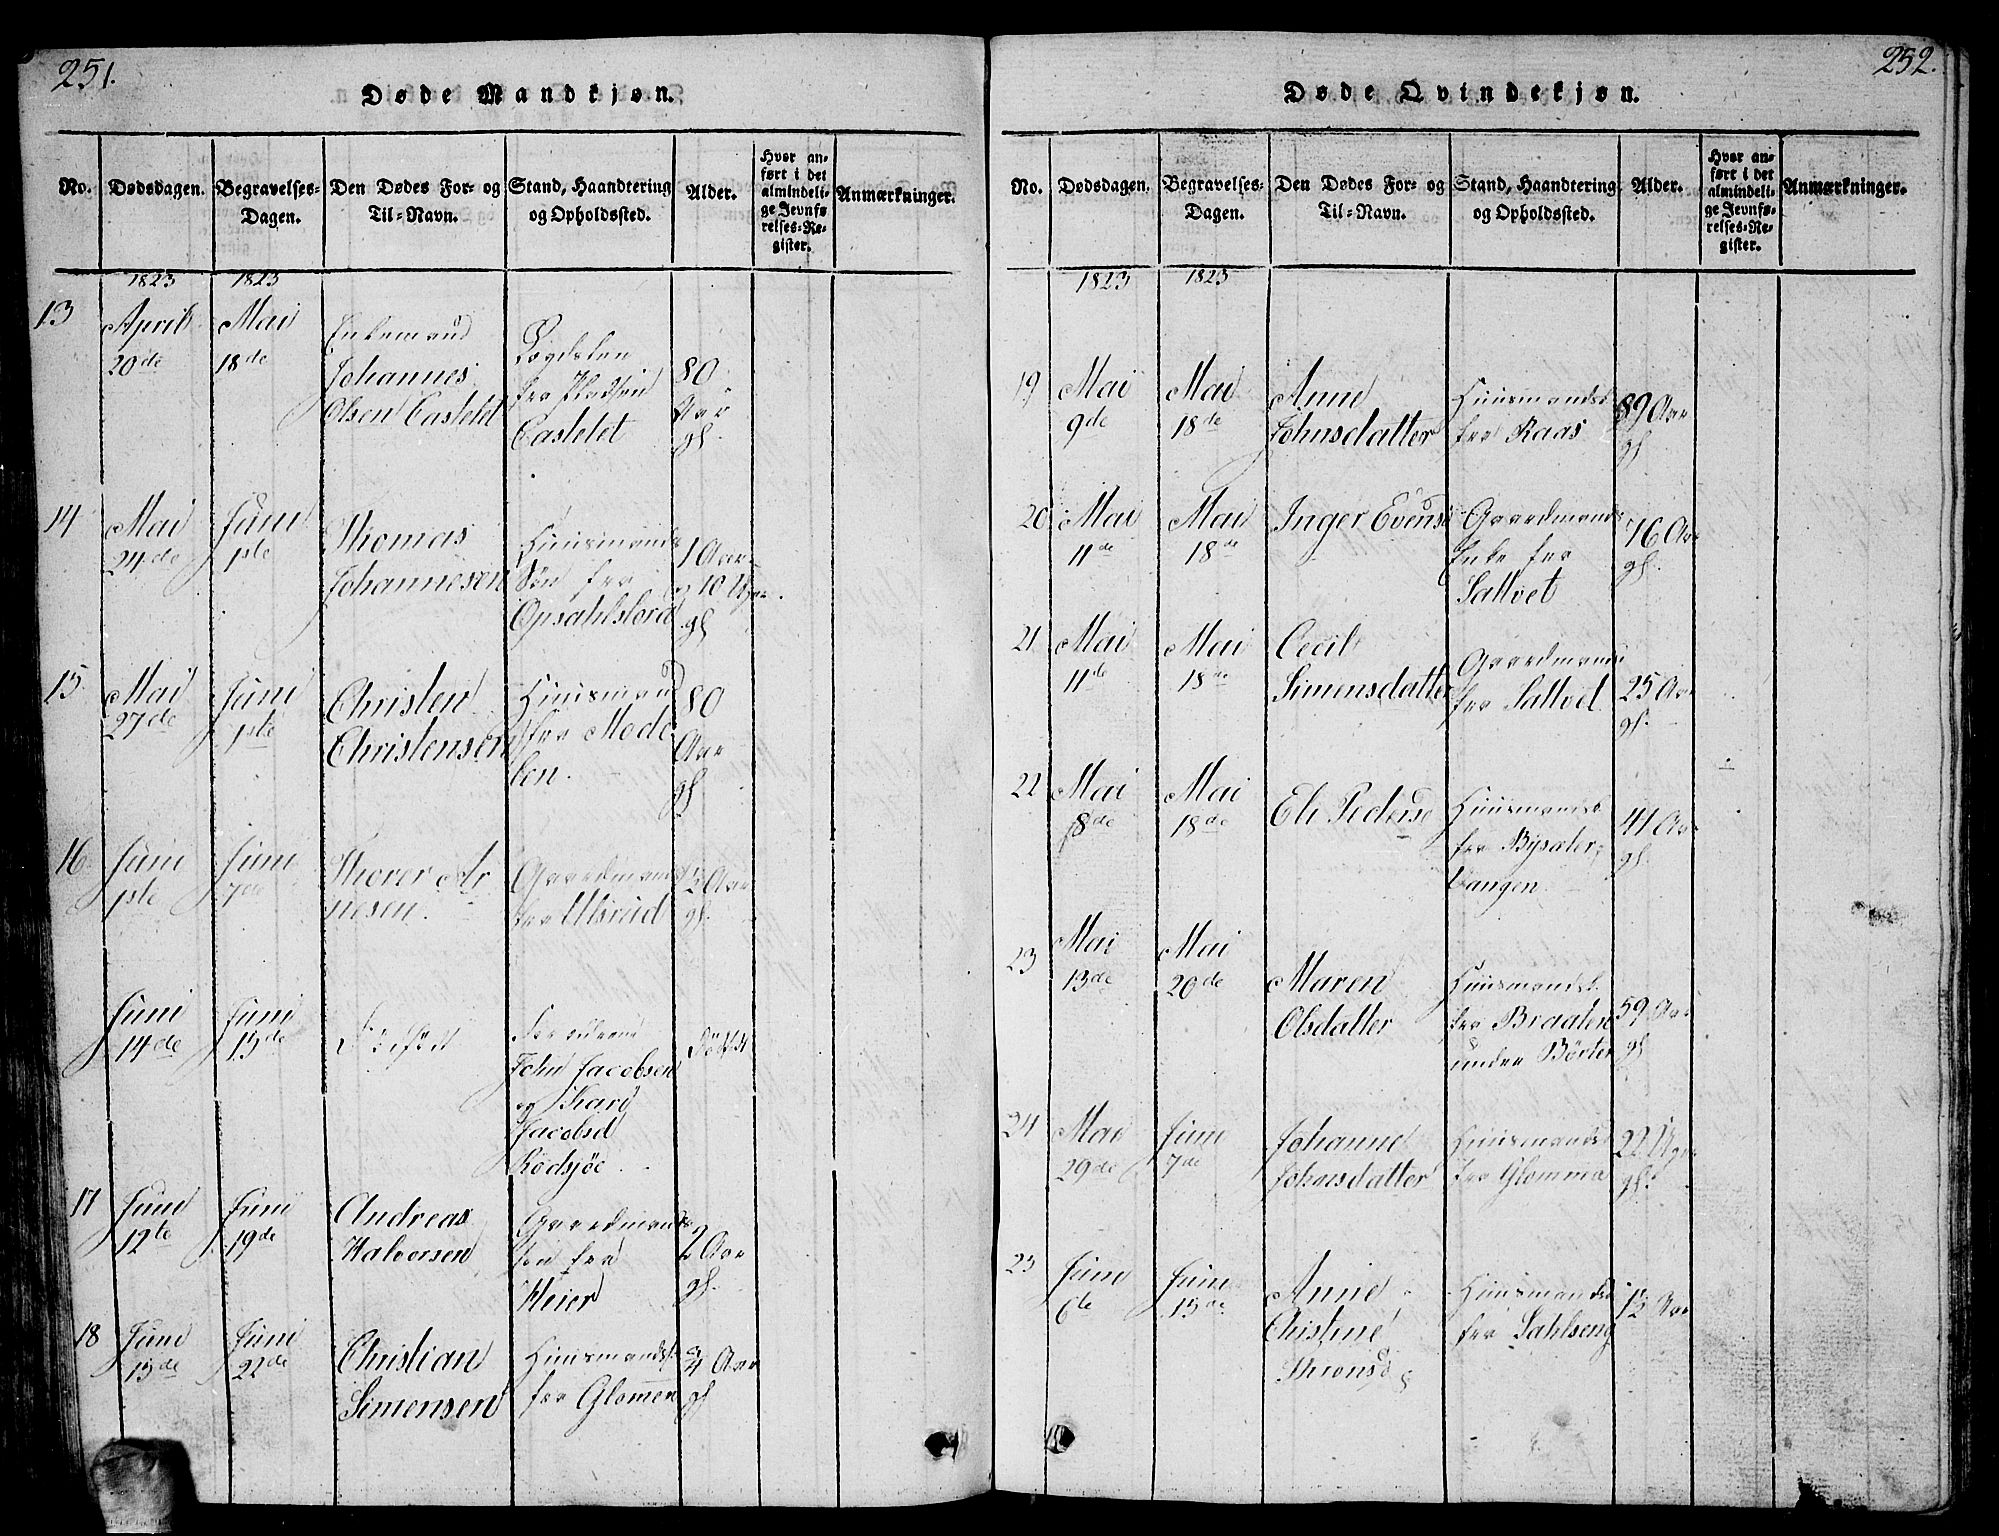 251.
Døde Mandkjøn.
No. Dødsdagen. Begravelses-Dagen. Den Dødes For- og Til-Navn. Stand, Haandtering og Opholdssted. Alder. Hvor anført i det almindelige Jevnførelses-Register. Anmærkninger.
1823 1823
13 April 20de Mai 18de Enkemand Johannes Olsen Castelet fra Pladsen Castelet 80 Aar gl.
14 Mai 24de Juni 1ste Thomas Johannesen Huusmands Søn fra Opsahlslora 1 Aar og 10 Uger gl
15 Mai 27de Juni 1ste Christen Christensen Huusmand fra 80 Aar gl
16. Juni 1ste Juni 7de Thorer Arnesen. Gaardmand fra Ulsrud Aar gl.
Juni 14de Juni 15de John Jacobsen og Kari Jacobsd Rodsjøe
17 Juni 12te Juni 19de Andreas Halvorsen Gaardmands Søn fra Heier 2 Aar gl.
18 Juni 15de Juni 22de Christian Simensen Huusmands. fra Glommen 3/4 Aar gl
252.
Døde Qvindekjøn.
No. Dødsdagen. Begravelses-Dagen. Den Dødes For- og Til-Navn. Stand, Haandtering og Opholdssted. Alder. Hvor anført i det almindelige Jevnførelses-Register. Anmærkninger.
1823 1823
19 Mai 9de Mai 18de Anne Johnsdatter Huusmands fra Raas 89 Aar gl
20 Mai 11de Mai 18de Inger Evensd Gaardmands Enke fra Sattvet 76 Aar gl.
21 Mai 11de Mai 18de Cecil Simensdatter Gaardmand fra Sattvet 25 Aar gl.
22 Mai 8de Mai 18de Eli Pedersd Huusmandsk fra Bysæter-vangen. 41 Aar gl.
23 Mai 13de Mai 20de Maren Olsdatter Huusmandsk. fra Braaten under Börter 59 Aar gl
24 Mai 29de Juni 7de Johanne Johnsdatter Huusmandsd fra Glomma 22 Uger gl.
25 Juni 6de Juni 15de Anne Christine Thronsd Huusmandsd fra Sahlseng Aar